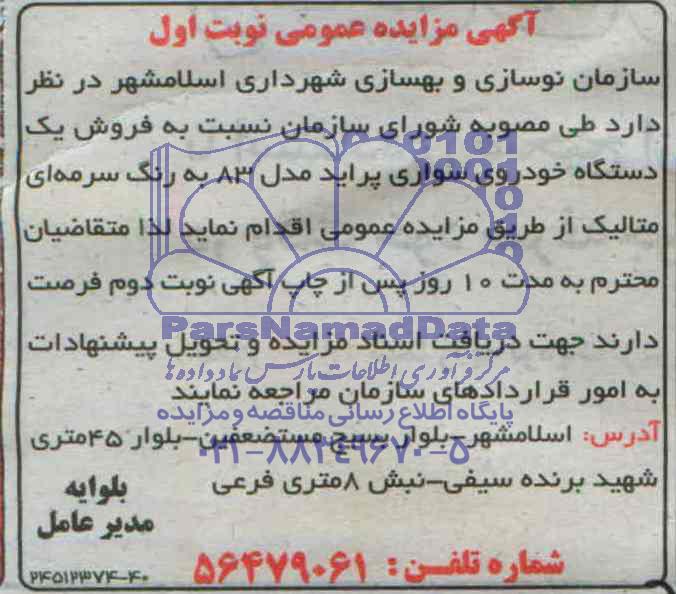 آگهی مزایده عمومی نوبت اول
سازمان نوسازی و بهسازی شهرداری اسلامشهر در نظر
دارد طی مصوبه شورای سازمان نسبت به فروش یک
دستگاه خودروی سواری پراید مدل ۸۳ به رنگ سرمه‌ای
متالیک از طریق مزایده عمومی اقدام نماید لذا متقاضیان
محترم به مدت ۱۰ روز پس از چاپ آگهی نوبت دوم فرصت
دارند جهت دریافت اسناد مزایده و تحویل پیشنهادات
به امور قراردادهای سازمان مراجعه نمایند
آدرس: اسلامشهر-بلوار بسیج مستضعفین-بلوار ۴۵متری
شهید برنده سیفی-نبش ۸متری فرعی
بلوایه
مدیر عامل
شماره تلفن: ۵۶۴۷۹۰۶۱
۲۴۵۱۲۳۷۴-۴۰
ParsNamadData
مرکز فرآوری اطلاعات پارس نماد داده‌ها
پایگاه اطلاع رسانی مناقصه و مزایده
۰۲۱-۸۸۳۴۹۶۷۰-۵